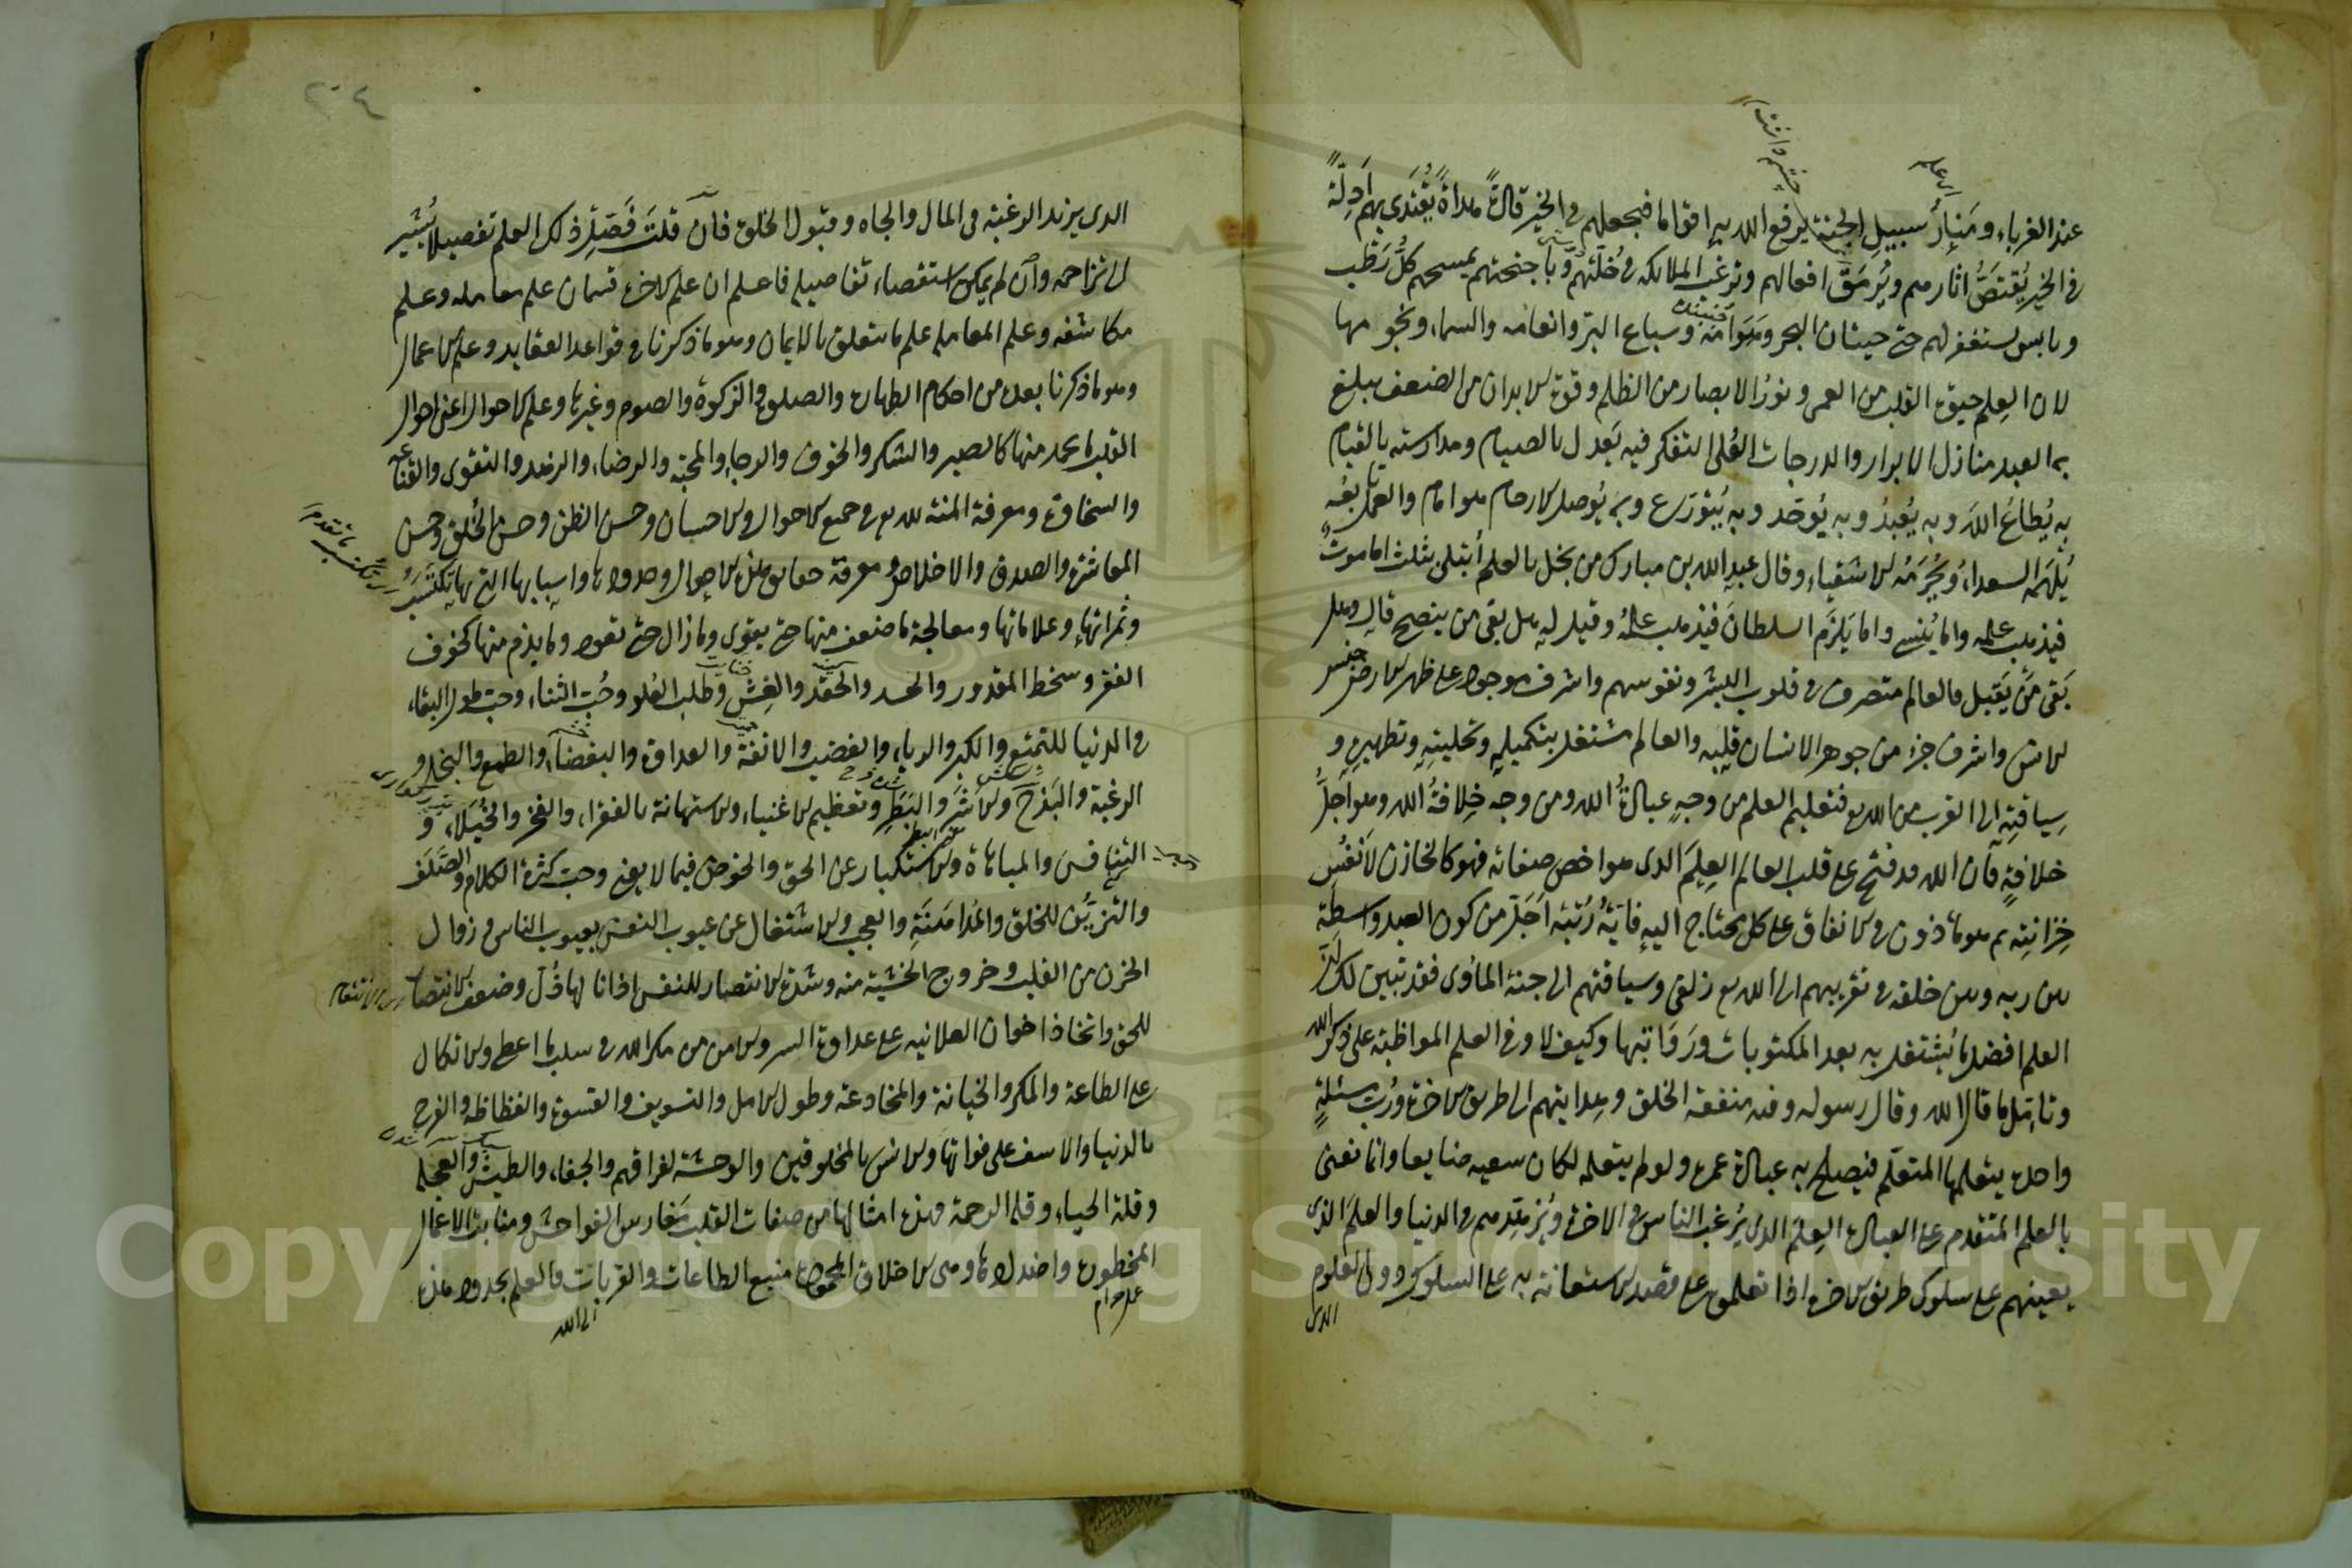 عند الغرباء ومنار سبيل الجنة يرفع الله به اقواما فيجعلهم في الخير قادة هداة يقتدى بهم ادلة
في الخير يقتص اثارهم ويرمق افعالهم وترغب الملائكة في خلتهم وباجنحتهم يمسحهم كل رطب
ويابس يستغفر لهم حتى حيتان البحر وهوامه وسباع البر وانعامه والسماء ونجومها
لان العلم حيوة القلب من العمى ونور الابصار من الظلم وقوة الابدان من الضعف يبلغ
به العبد منازل الابرار والدرجات العلى التفكر فيه يعدل بالصيام ومدارسته بالقيام
به يطاع الله وبه يعبد وبه يوحد وبه يتورع وبه يوصل الارحام هو امام والعمل تابعه
يلهمه السعداء ويحرمه الاشقياء وقال عبد الله بن مبارك من بخل بالعلم ابتلي بثلث اما موت
فيذهب علمه واما ينسى واما يلزم السلطان فيذهب علمه وقيل له هل بقي من ينصح قال وهل
بقى من يقبل فالعالم متصرف في قلوب البشر ونفوسهم واشرف موجود على ظهر الارض جنس
الانس واشرف جزء من جوهر الانسان قلبه والعالم مشتغل بتكميله وتحليته وتطهيره و
سياقته الى القرب من الله تع فتعليم العلم من وجه عبادة الله ومن وجه خلافة الله وهو اجل
خلافة فان الله قد فتح على قلب العالم العلم الذى هو اخص صفاته فهو كالخازن لانفس
خزائنه ثم هو ماذون في الانفاق على كل محتاج اليه فاية رتبة اجل من كون العبد واسطة
بين ربه وبين خلقه في تقريبهم الى الله تع زلفى وسياقتهم الى جنة المأوى فقد تبين لك ان
العلم افضل ما يشتغل به بعد المكتوبات ورواتبها وكيف لا وفي العلم المواظبة على ذكر الله
وتامل ما قال الله وقال رسوله وفيه منفعة الخلق وهدايتهم الى طريق الاخرة ورب مسئلة
واحدة يتعلمها المتعلم فيصلح به عبادة عمره ولو لم يتعلمه لكان سعيه ضايعا وانما نعنى
بالعلم المتقدم على العبادة العلم الذى يرغب الناس في الاخرة ويزهدهم في الدنيا والعلم الذى
يعينهم على سلوك طريق الاخرة اذا تعلموه على قصد الاستعانة به على السلوك دون العلوم
الذى
الذى يزيد الرغبة فى المال والجاه وقبول الخلق فان قلت فصل لى ذلك العلم تفصيلا يشير
الى تراجمه وان لم يمكن استقصاء تفاصيله فاعلم ان علم الاخرة قسمان علم معامله وعلم
مكاشفه وعلم المعامله علم ما يتعلق بالايمان وهو ما ذكرنا في قواعد العقايد وعلم الاعمال
وهو ما ذكرنا بعده من احكام الطهارة والصلوة والزكوة والصوم وغيرها وعلم الاحوال اعنى احوال
القلب ما يحمد منها كالصبر والشكر والخوف والرجاء والمحبة والرضاء والزهد والتقوى والقناعة
والسخاوة ومعرفة المنة لله تع في جميع الاحوال والاحسان وحسن الظن وحسن الخلق وحسن
المعاشرة والصدق والاخلاص ومعرفة حقايق هذه الاحوال وحدودها واسبابها التى بها يكتسب
وثمراتها وعلاماتها ومعالجة ما ضعف منها حتى يقوى وما زال حتى تعود وما يذم منها كخوف
الفقر وسخط المقدور والحسد والحقد والغش وطلب العلو وحب الثناء وحب طول البقاء
في الدنيا للتمتع والكبر والرياء والغضب والانفة والعداوة والبغضاء والطمع والبخل و
الرغبة والبذخ والاشر والبطر وتعظيم الاغنياء والاستهانة بالفقراء والفخر والخيلاء و
التنافس والمباهاة والاستكبار عن الحق والخوض فيما لا يعنى وحب كثرة الكلام والصلف
والتزين للخلق والمداهنة والعجب والاشتغال عن عيوب النفس بعيوب الناس وزوال
الحزن من القلب وخروج الخشية منه وشدة الانتصار للنفس اذا نالها ذل وضعف الانتصار
للحق واتخاذ اخوان العلانيه على عداوة السر والامن من مكر الله في سلب ما اعطى والاتكال
على الطاعة والمكر والخيانة والمخادعة وطول الامل والتسويف والقسوة والفظاظه والفرح
بالدنيا والاسف على فواتها والانس بالمخلوقين والوحشة لفراقهم والجفاء والطيش والعجلة
وقلة الحياء وقلة الرحمة فهذه امثالها من صفات القلب مغارس الفواحش ومنابت الاعمال
المحظورة واضدادها وهى الاخلاق المحمودة منبع الطاعات والقربات فالعلم بحدود هذه
الى الله